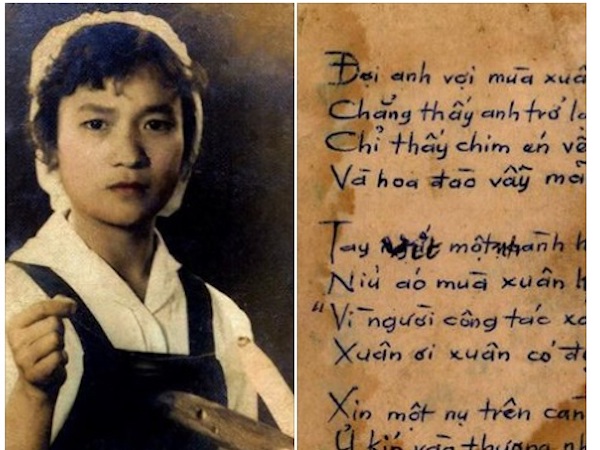 Đợi anh vợi mùa xuâ
Chẳng thấy anh trở lạ
Chỉ thấy chim én về
Và hoa đào vẫy mà
Tay một nhành h
Níu áo mùa xuân h
"Vì người công tác xa
Xuân ơi xuân có đợ
Xin một nụ trên càn
Ủ kín vào thương nh